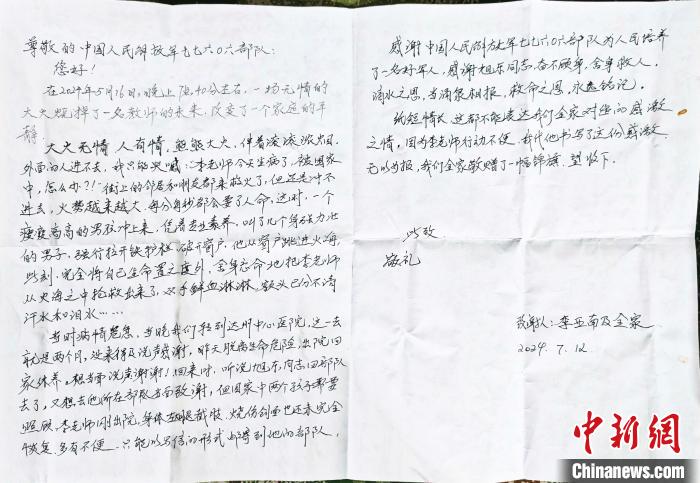 尊敬的中国人民解放军七七六〇六部队：
您好！
在2024年5月16日晚上9点40分左右，一场无情的
大火毁掉了一名教师的未来，改变了一个家庭的平
静。
大火无情 人有情，熊熊大火，伴着滚滚浓烟，
外面的人进不去，我只能哭喊：李老师今天生病了，在
中，怎么办？！街上的邻居和朋友都来救火了，但还是冲不
进去，火势越来越大，每分每秒都会要了人命，这时，一个
瘦瘦高高的男孩冲上来，凭着专业素养，叫了几个身强力壮
的男子，强行拉开铁护栏，破开窗户，他从窗户跳进火海，
此刻，完全将自己生命置之度外，舍身忘命地把李老师
从火海之中抢救出来了，双手鲜血淋淋，额头已分不清
汗水和泪水……
当时病情危急，当晚我们转到达州中心医院，这一去
就是两个月，没来得及说声感谢，昨天脱离生命危险，出院回
家休养。想当面说声谢谢！回来时，听说旭东同志回部队
去了，又想去他所在部队当面致谢，但因家中两个孩子都要
照顾，李老师刚出院，身体左腿截肢，烧伤创面也还未完全
恢复，多有不便。只能以写信的形式邮寄到他的部队，
感谢中国人民解放军七七六〇六部队为人民培养
了一名好军人，感谢旭东同志，奋不顾身，舍身救人。
滴水之恩，当涌泉相报，救命之恩，永远铭记。
纸短情长，这都不能表达我们全家对您的感激
之情，因为李老师行动不便，我代他书写了这份感激，
无以为报，我们全家敬赠了一幅锦旗，望收下。
此致
敬礼
致谢人：李亚南及全家
2024.7.12
中新网
Chinanews.com